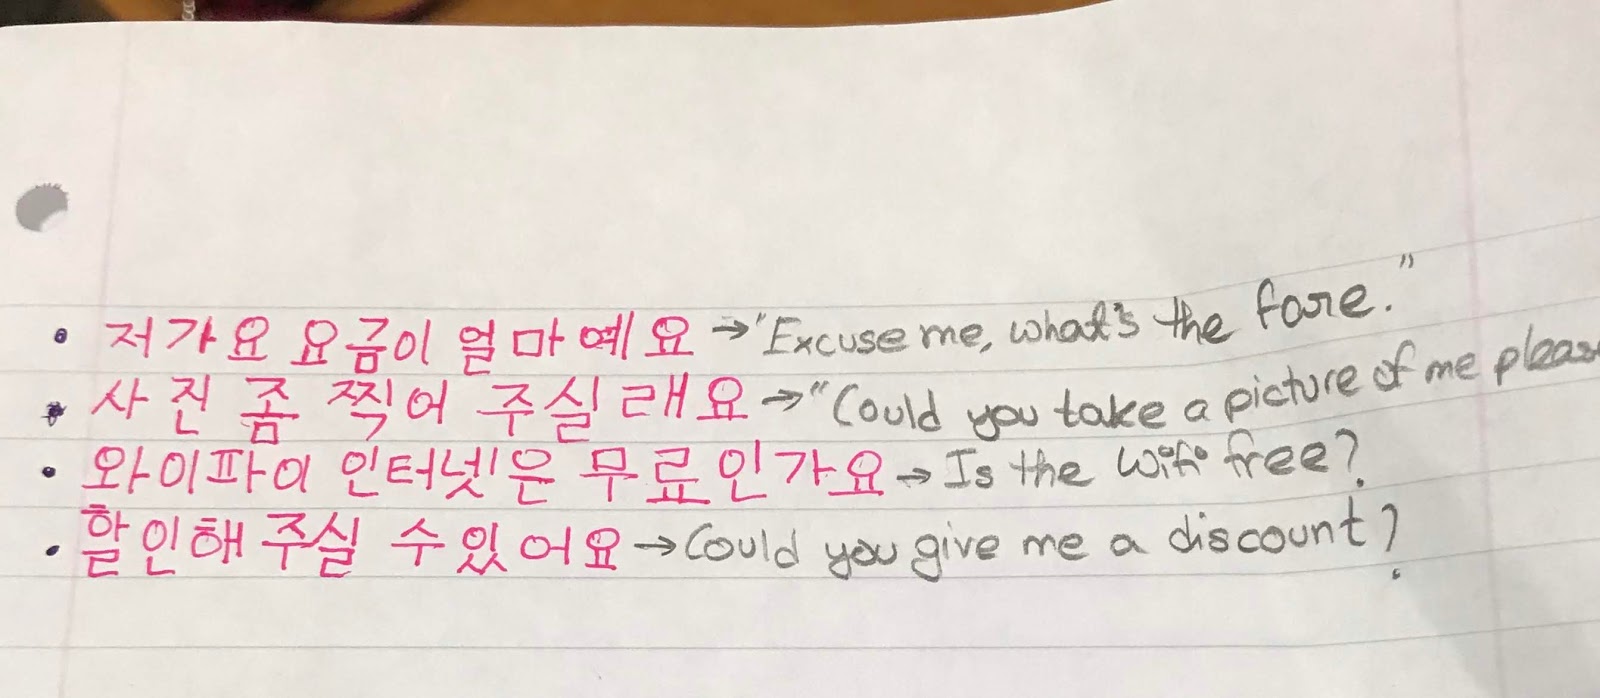 • 저가요 요금이 얼마예요 → "Excuse me, what's the fare."
• 사진 좀 찍어 주실래요 → "Could you take a picture of me pleas
• 와이파이 인터넷은 무료인가요 → Is the wifi free?
• 할인해 주실 수 있어요 → Could you give me a discount?